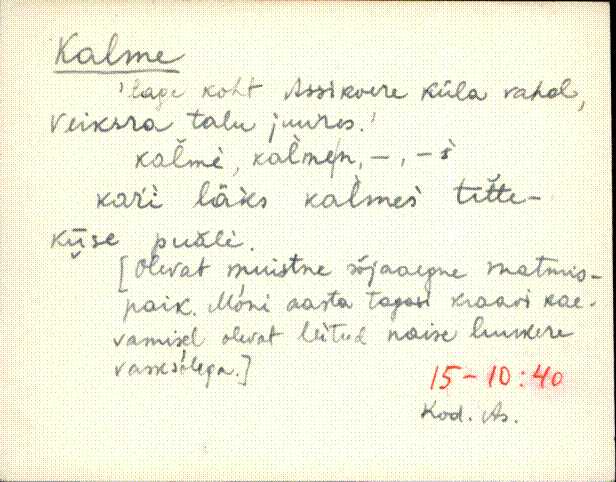 Kalme
'lage koht Assikvere küla vahel,
Veiksra talu juures.'
kal̀mè, kal̀men, –, – s̀
kari läks kal̀mes titte-
küse puälè.
[Olevat muistne sõjaaegne matmis-
paik. Mõni aasta tagasi kraavi kae-
vamisel olevat leitud naise luukere
vasksõlega.]
15-10:40
Kod. As.